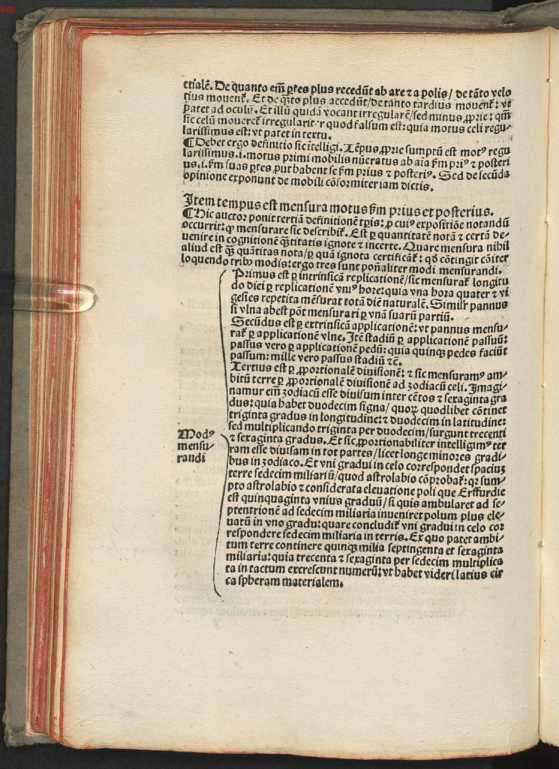 ctialē. De quanto em̄ ꝑtes plus recedūt ab axe ⁊ a polis / de tāto velo
tius mouent̄. Et de q̄to plus accedūt / de tanto tardius mouent̄: vt
patet ad oculū. Et illū quidā vocant irregularē / sed minus ꝓprie: qm̄
sic celū moueret̄ irregularit᷑ quod falsum est: quia motus celi regu⸗
larissimus est: vt patet in textu.
¶ Debet ergo definitio sic intelligi. Tēpus ꝓprie sumptū est motꝰ regu
larissimus .i. motus primi mobilis nūeratus ab aīa ẜm priꝰ ⁊ posteri
us .i. ẜm suas ꝑtes put habent se ẜm prius ⁊ posteriꝰ. Sed de secūda
opinione exponunt de mobili cōformiter iam dictis.
Item tempus est mensura motus ẜm prius et posterius.
¶ Hic auctor ponit tertiā definitionē tꝑis: ꝓ cuiꝰ expositiōe notandū
occurrit: ꝙ mensurare sic describit̄. Est ꝑ quantitatē notā ⁊ certā de⸗
uenire in cognitionē q̄titatis ignote ⁊ incerte. Quare mensura nihil
aliud est q̄ꝫ quātitas nota / ꝑ quā ignota certificat̄: qd̄ cōtingit cōiter
loquendo tribꝰ modis: ergo tres sunt pōnaliter modi mensurandi.
Primus est ꝑ intrinsecā replicationē / sic mensurat̄ longitu
do diei ꝑ replicationē vniꝰ hore: quia vna hora quater ⁊ vi
gesies repetita mēsurat totā diē naturalē. Similit᷑ pannus
si vlna abest pōt mensurari ꝑ vnā suarū partiū.
Secūdus est ꝑ extrinsecā applicationē: vt pannus mensu⸗
rat̄ ꝑ applicationē vlne. Itē stadiū ꝑ applicationē passuū:
passus vero ꝑ applicationē pedū: quia quinqꝫ pedes faciūt
passum: mille vero passus stadiū ⁊c̄.
Tertius est ꝑ ꝓportionalē diuisionē: ⁊ sic mensuramꝰ am⸗
bitū terre ꝑ ꝓportionalē diuisionē ad zodiacū celi. Imagi⸗
namur em̄ zodiacū esse diuisum inter cētos ⁊ sexaginta gra
dus: quia habet duodecim signa / quoꝝ quodlibet cōtinet
triginta gradus in longitudine: ⁊ duodecim in latitudine:
sed multiplicando triginta per duodecim / surgunt trecenti
⁊ sexaginta gradus. Et sic ꝓportionabiliter intelligimꝰ ter
ram esse diuisam in tot partes / licet longe minores gradi⸗
bus in zodiaco. Et vni gradui in celo correspondet spaciuꝫ
terre sedecim miliariū / quod astrolabio cōprobat̄: qꝛ sum⸗
pto astrolabio ⁊ considerata eleuatione poli que Erffurdie
est quinquaginta vnius graduū / si quis ambularet ad se⸗
ptentrionē ad sedecim miliaria inueniret polum plus ele⸗
uatū in vno gradu: quare concludit̄ vni gradui in celo coꝛ
respondere sedecim miliaria in terris. Ex quo patet ambi⸗
tum terre continere quinqꝫ milia septingenta et sexaginta
miliaria: quia trecenta ⁊ sexaginta per sedecim multiplica
ta in tactum excrescunt numerū: vt habet videri latius cir
ca spheram materialem.
Modꝰ
mensu⸗
randi